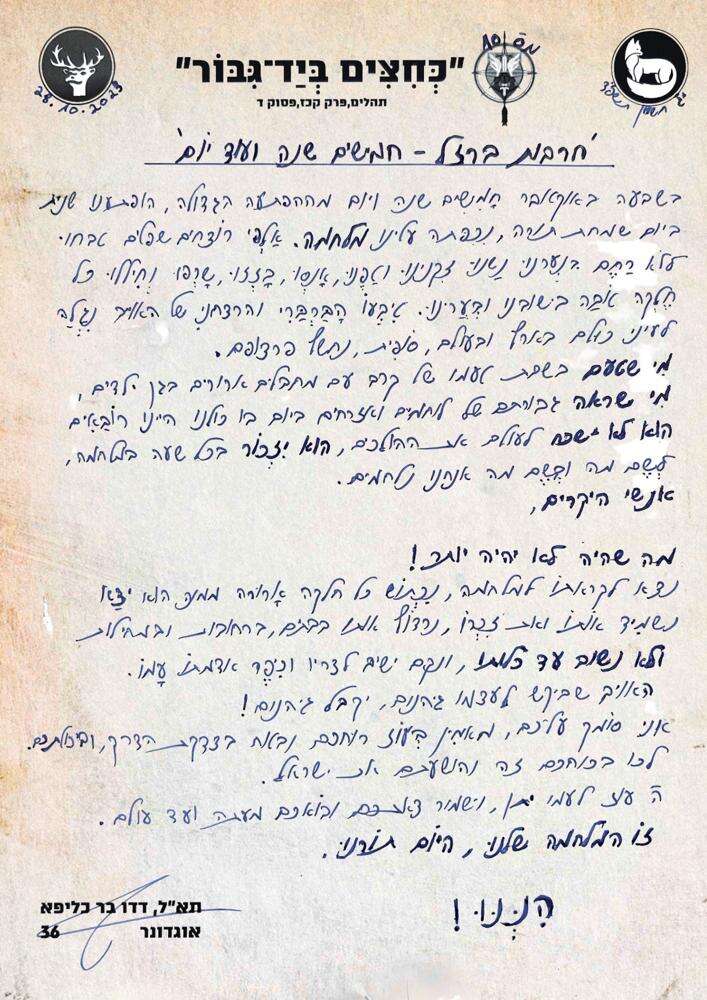 מס 10
"כְּחִצִּים בְּיַד־גִּבּוֹר"
תהלים, פרק קכז, פסוק ד
28.10.2023
י"ג חשוון תשפ"ד
'חרבות ברזל - חמישים שנה ועוד יום'
בשבעה באוקטובר חֲמִשִּׁים שנה ויום מההפתעה הגדולה, הופתענו שנית
ביום שמחת תורה, נִכפתה עלינו מלחמה. אַלְפֵי רוצחים שפלים טבחו
ללא רַחֵם בִּנְעָרֵנוּ נָשֵׁנוּ זְקֵנֵינוּ וטַפֵּנוּ, אָנסוּ, בָּזזוּ, שָׂרְפוּ וחיללו כל
חֶלְקָה טוֹבָה בישובנו ובְעָרֵינוּ. טִבְעוֹ הַבַּרְבָּרִי והרצחני של האויב נִגְלָה
לעיני כולם בארץ ובעולם, סופית, נחשף פרצופם.
מִי שטעם בשבת טעמו של קרב עם מחבלים ארורים בגן ילדים,
מִי שראה גבורתם של לוחמים ואזרחים ביום בו כולנו היינו רוֹבָאִים
הוא לא ישכח לעולם את ההולכים, הוא יִזְכּוֹר בכל שעה במלחמה,
לְשֵׁם מה ובְשֵׁם מה אנחנו נלחמים.
אנשי היקרים,
מה שהיה לא יהיה יותר!
נצא לקראתו למלחמה, נִכְתּוֹשׁ כל חלקה אֲרוּרה ממנה הוא יָצָא
נשמיד אותו ואת זִכְרוֹ, נרדוף אותו בבתים, ברחובות ובמחילות
ולא נשוב עד כלותו, ונקם ישיב לצריו וכִיפֶּר אדמתו עַמּוֹ.
האויב שביקש לעצמו גיהנום, יקבל גיהנום!
אני סומך עליכם, מאמין בְּעוֹז רוחכם ובטוח בצדקת הדרך, וביכולתכם.
לכו בכוחכם זה והושעתם את ישראל.
ה' עוז לעמו יתן, וישמור צאתכם ובואכם מעתה ועד עולם.
זוֹ המלחמה שלנוּ, היום תורנוּ.
הִנֶּנּוּ!
תא"ל, דדו בר כליפא
אוגדונר 36